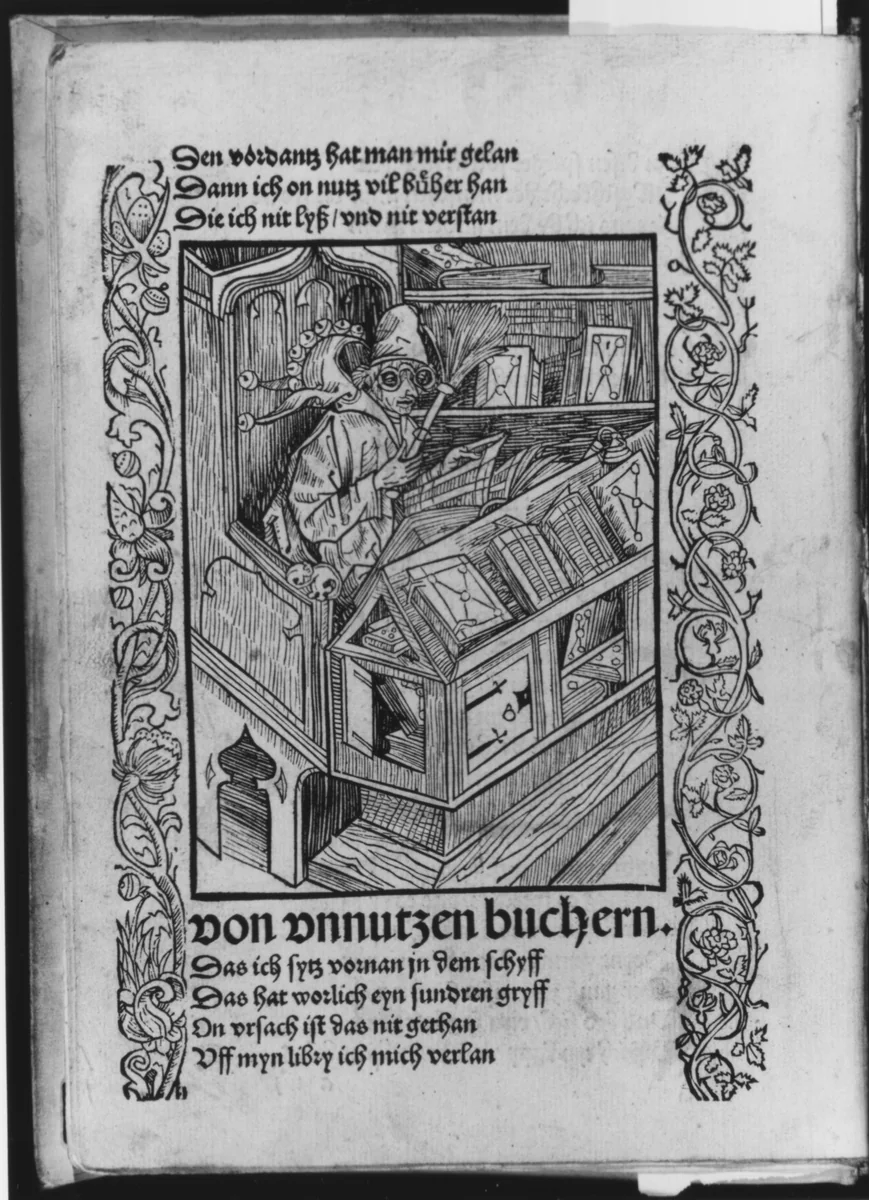 Den vordantz hat man mir gelan
Dann ich on nutz vil buͤher han
Die ich nit lyß / vnd nit verstan
von vnnutzen buchern.
Das ich sytz vornan jn dem schyff
Das hat worlich eyn sundren gryff
On vrsach ist das nit gethan
Vff myn libry ich mich verlan